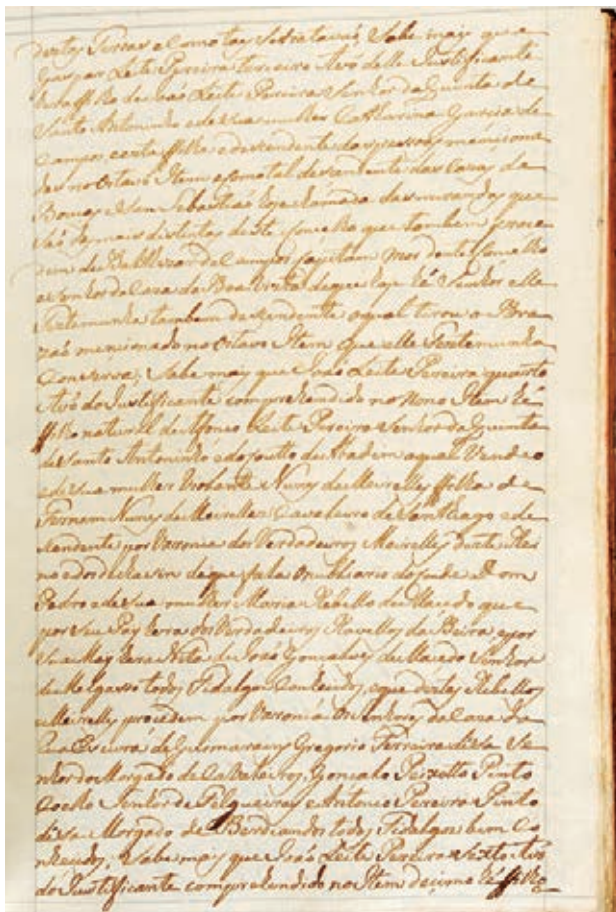 destes Terras e Como tay se tratavaõ, Sabe mais que
Gaspar Leite Pereira terceiro Avo delle Justificante
he ffilho de Joaõ Leite Pereira Senhor da Quinta de
Santo Antoninho e de sua mulher Catharina Garcia de
Campos, e esta ffilha e descendente das pessoas mencionadas
no Oitavo Item e como tal descendente das Cazas de
Bouças e San Sebastiaõ hoje chamada das que
saõ das mais distintas deste Conselho que tambem proce
dem de Balthezar de Campos Capitam Mor deste Conselho
e Senhor da Caza da Boa Vista de que hoje hé Senhor elle
Testemunha tambem descendente o qual tirou o Bra
zaõ mencionado no Oitavo Item que elle Testemunha
Conserva; Sabe mais que Joaõ Leite Pereira quarto
Avó do Justificante comprehendido no Nono Item hé
ffilho natural de Afonço Leite Pereira Senhor da Quinta
de Santo Antoninho e do Coutto de Abadem o qual Vendeo
e de sua mulher Violante Nunes de Meirelles ffilha de
Fernem Nunes de Meirelles Cavaleiro de Santiago e de
cendente por Varonia dos Verdadeiros Meirelles deste Rei
no e dos de que fala o Nubiliario do Conde Dom
Pedro e de sua mulher Maria Rebello de Macedo que
por seu Pay hera dos Verdadeiros Ravellos da Beira e por
sua May hera Neta de Joaõ Gonçalves de Macedo Senhor
de Melgasso todos Fidalgos Conhecidos, e que destes Rebellos
e Meirelles procedem por Varonia os Senhores da Caza da
de Guimaraens Gregorio Ferreira d'Esa Se
nhor do Morgado de Cavaleiros, Goncalo Peixotto Pinto
Coelho Senhor de Felgueiras e Antonio Pereira Pinto
d'Esa Morgado de Bertiandos todos Fidalgos bem Co
nhecidos; Sabe mais que Joaõ Leite Pereira Sexto Avo
do Justificante comprehendido no Item decimo hé ffilho